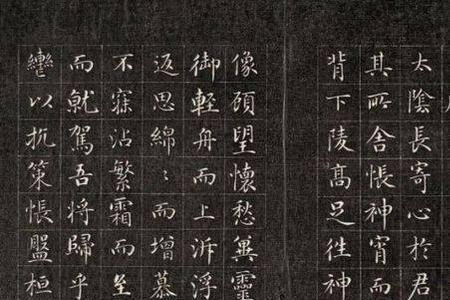 太陰長寄心於君
其所舍悵神宵而
背下陵高足往神
像顧望懷愁冀靈
御輕舟而上泝浮
返思綿〻而增慕
不寐沾繁霜而至
而就駕吾將歸乎
轡以抗策悵盤桓